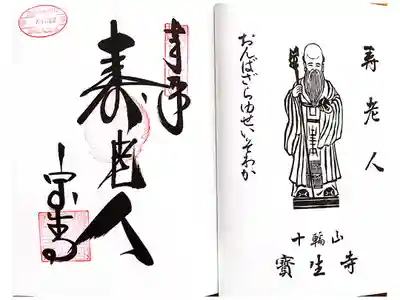 寿老人
おんばざらゆせいそわか
十輪山
寶生寺
奉拝
寿老人
宝生寺